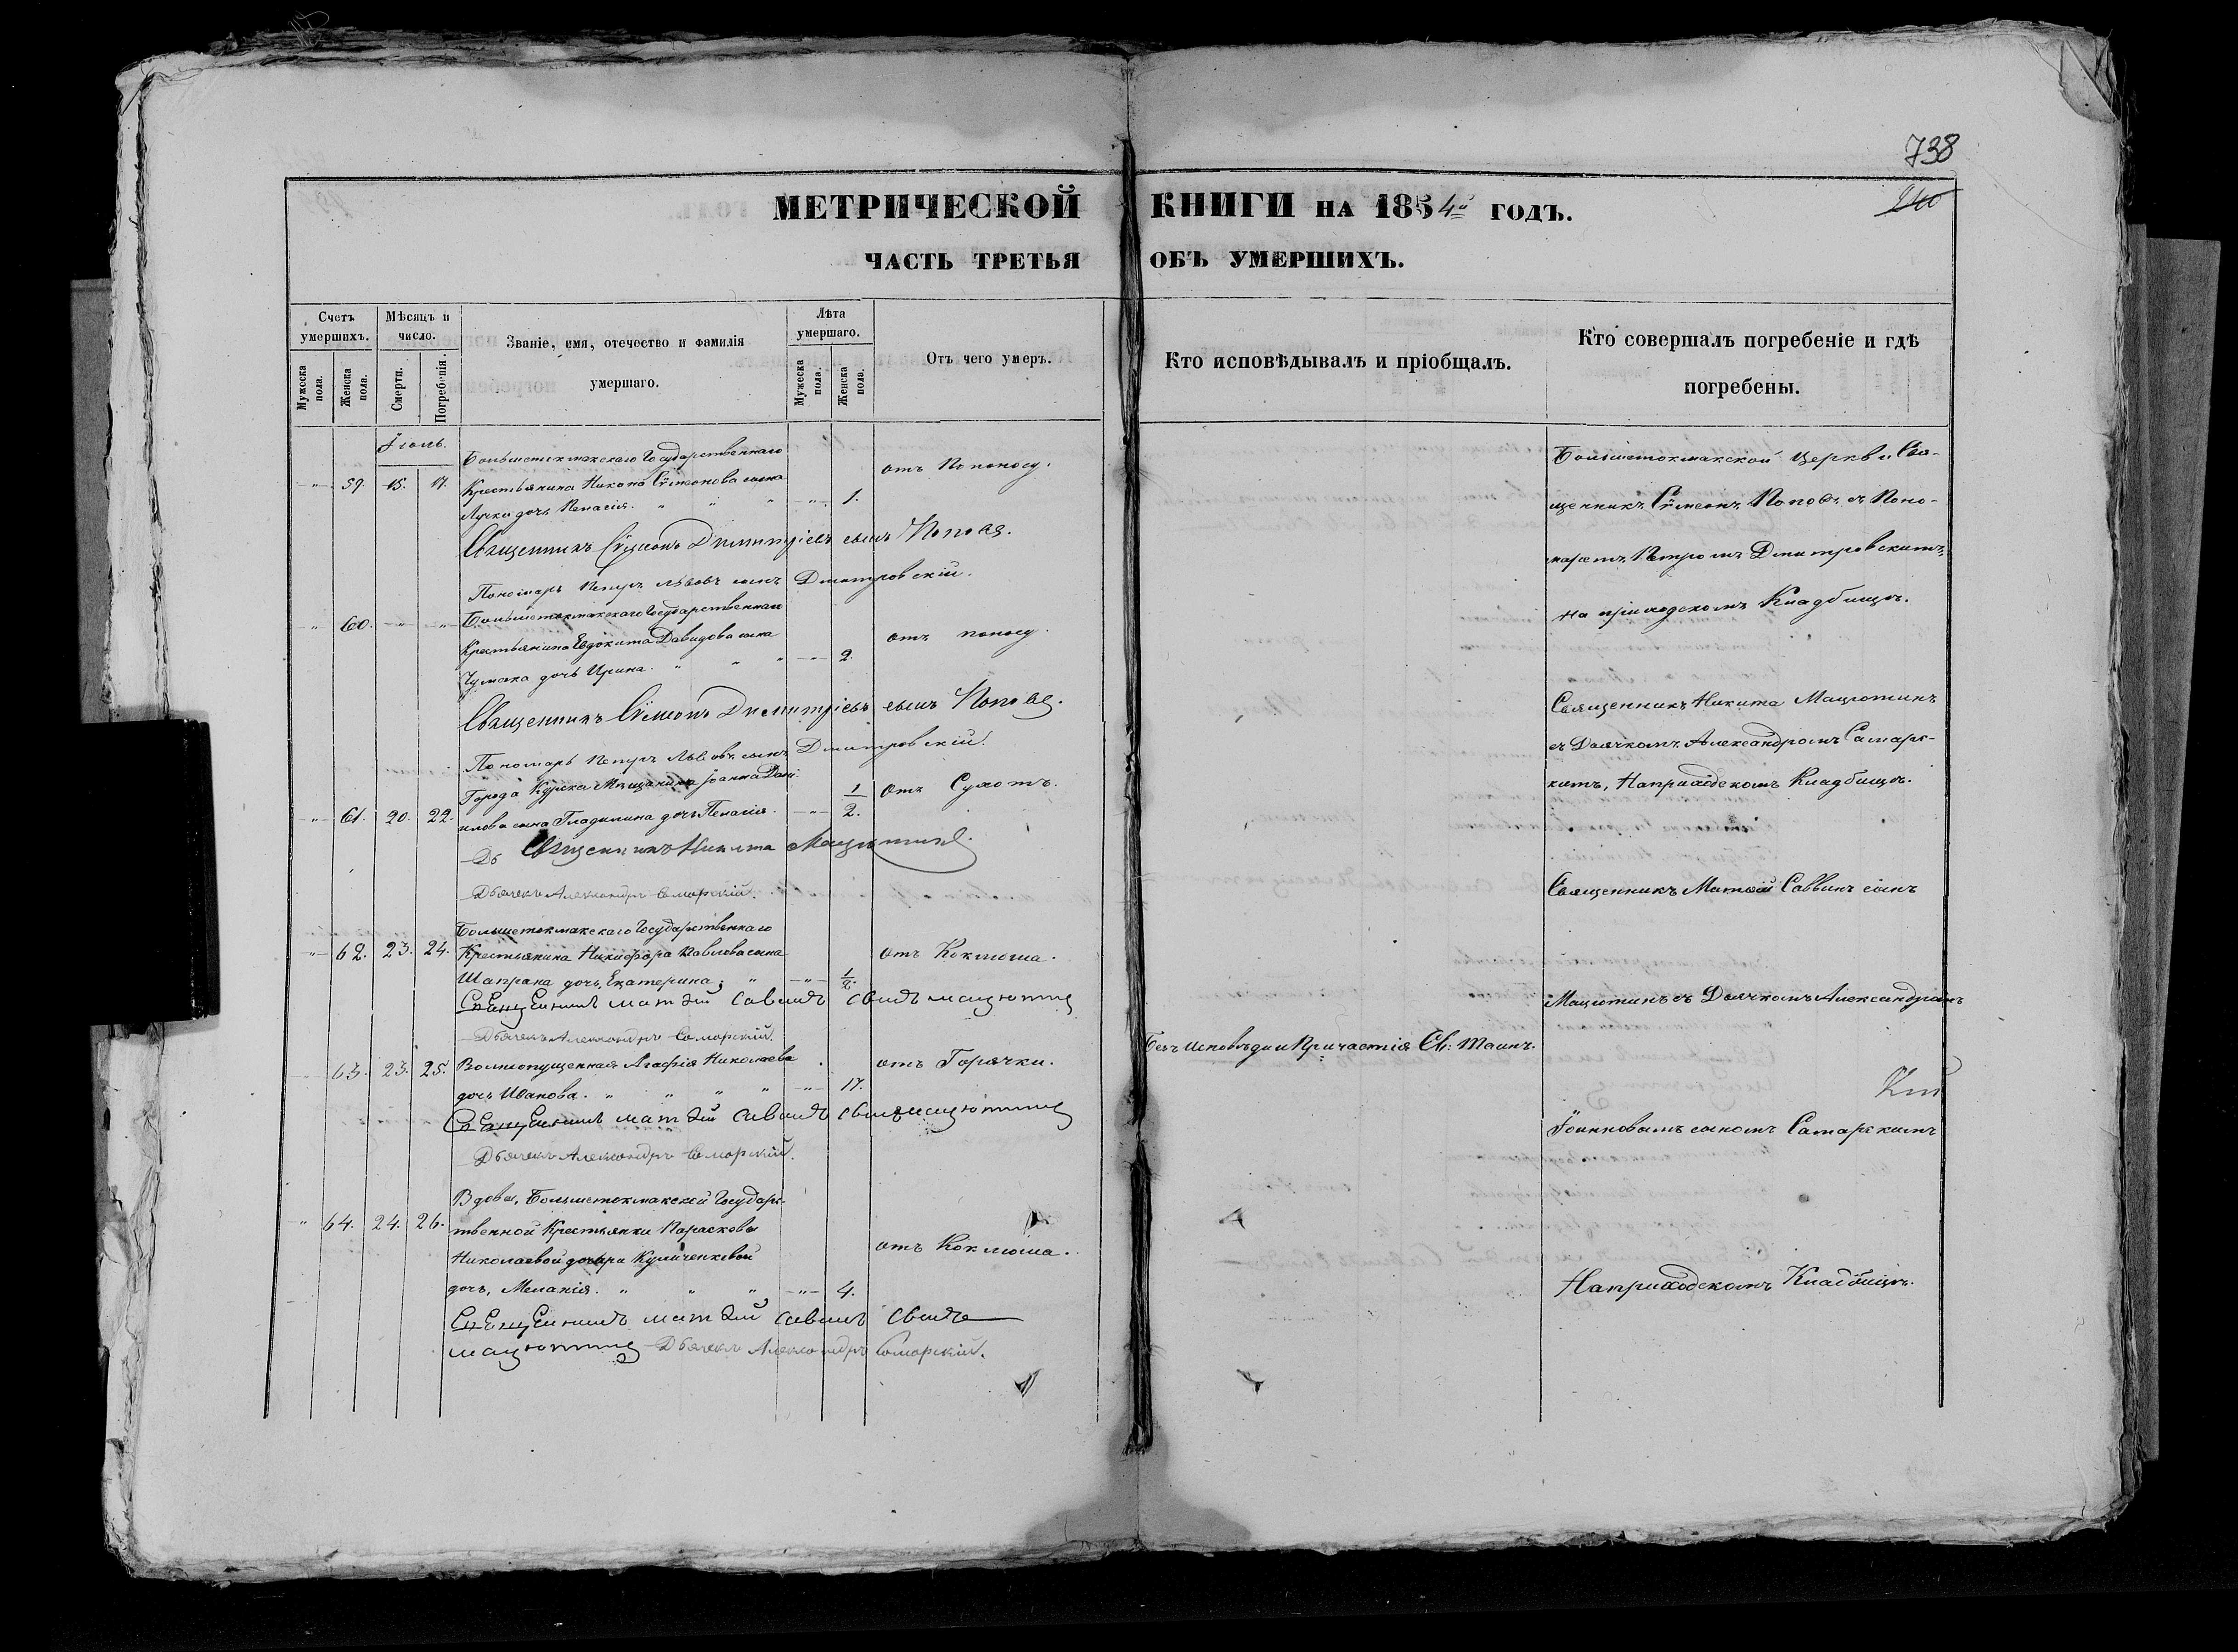 738
240
МЕТРИЧЕСКОЙ КНИГИ НА 1854й ГОДЪ.
ЧАСТЬ ТРЕТЬЯ ОБЪ УМЕРШИХЪ.
Счетъ умершихъ.
Мужеска пола.
Женска пола.
Мѣсяцъ и число.
Смерти.
Погребенія.
Званіе, имя, отечество и фамилія умершаго.
Лѣта умершаго.
Мужеска пола.
Женска пола.
Отъ чего умеръ.
Кто исповѣдывалъ и пріобщалъ.
Кто совершалъ погребеніе и гдѣ погребены.
Іюль.
Большетокмакскаго Государственнаго
59. 15. 17. Крестьянина Никона Сѵмеонова сына
дочь Пелагія. " " " 1.
отъ поносу.
Священникъ Сѵмеонъ Димитріевъ сынъ Поповъ.
Пономарь Петръ Львовъ сынъ Дмитровскій.
60. " " Большетокмакскаго Государственнаго
Крестьянина Евдокима Давидова сына
Чумака дочь Ирина. " " " 2.
отъ поносу.
Священникъ Сѵмеонъ Димитріевъ сынъ Поповъ.
Пономарь Петръ Львовъ сынъ Дмитровскій.
Города Курска Мѣщанина Іоанна Дані-
61. 20. 22. илова сына Гладилина дочь Пелагія. 1/2.
отъ Сухотъ.
Священникъ Никита Мацютинъ.
Дьячекъ Александръ Самарскій.
Большетокмакскаго Государственнаго
62. 23. 24. Крестьянина Никифора Павлова сына
Шапрана дочь, Екатерина; " 1/2.
отъ Коклюша.
Священникъ Матѳій Саввинъ сынъ Мацютинъ
Дьячекъ Александръ Самарскій.
63. 23. 25. Вольноотпущенная Агафія Николаева
дочь Иванова. " " " " 17.
отъ Горячки.
Безъ Исповѣди и Причастія Св: Таинъ.
Священникъ Матѳій Саввинъ сынъ Мацютинъ
Дьячекъ Александръ Самарскій.
Вдовы, Большетокмакской Государс-
64. 24. 26. твенной Крестьянки Параскевы
Николаевой дочери Куличенковой
дочь, Меланія. " " " " 4.
отъ Коклюша.
Священникъ Матѳій Саввинъ сынъ
Мацютинъ Дьячекъ Александръ Самарскій.
Большетокмакской Церкви Свя-
щенникъ Сѵмеонъ Поповъ съ Поно-
маремъ Петромъ Дмитровскимъ,
на приходскомъ Кладбищѣ.
Священникъ Никита Мацютинъ
съ Дьячкомъ Александромъ Самарс-
кимъ, На приходскомъ Кладбищѣ.
Священникъ Матѳій Саввинъ сынъ
Мацютинъ съ Дьячкомъ Александромъ
Іоанновымъ сыномъ Самарскимъ
На приходскомъ Кладбищѣ.